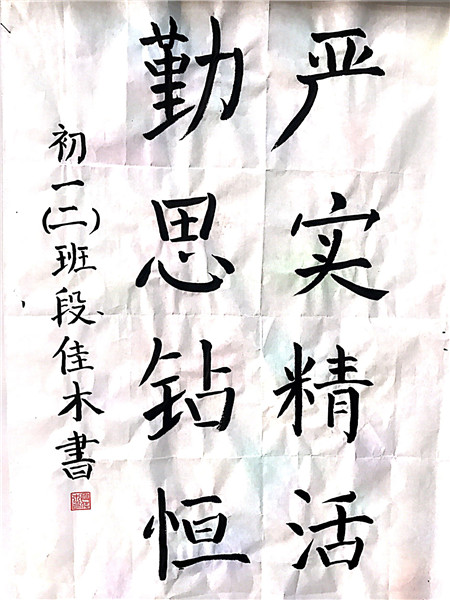 严实精活
勤思钻恒
初一(二)班段佳木書